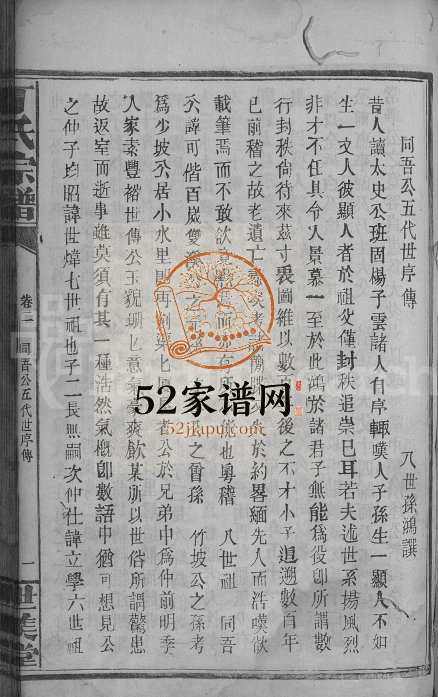 同吾公五代世序傳
八世孫鴻譔
昔人讀太史公班固揚子雲諸人自序輒嘆人子孫生一顯人不如
生一文人彼顯人者於祖父僅封秩追崇已耳若夫述世系揚風烈
非才不任其令人景慕一至於此鴻於諸君子無能為役卽所謂數
行封秩尙待來茲寸裘圖維以數 後之不才小子追遡數百年
已前稽之故老遺亡 考 失於約畧緬先人而浩嘆欲
載筆焉而不敢欲 焉而 在所 也粵稽 八世祖 同吾
公諱可偕百歲雙 之 之曾孫 竹坡公之孫考
為少坡公居小水里 再 公於兄弟中為仲前明季
人家素豐裕世傳公玉貌珊匕意氣豪爽飲某所以世俗所謂驚患
故返室而逝事雖莫須有其一種浩然氣概卽數語中猶可想見公
之仲子均昭諱世煒七世祖也子二長無嗣次仲仕諱立學六世祖
氏宗譜
卷二
同吾公五代世序傳
一
世美堂
52家谱网
52jiapu.com